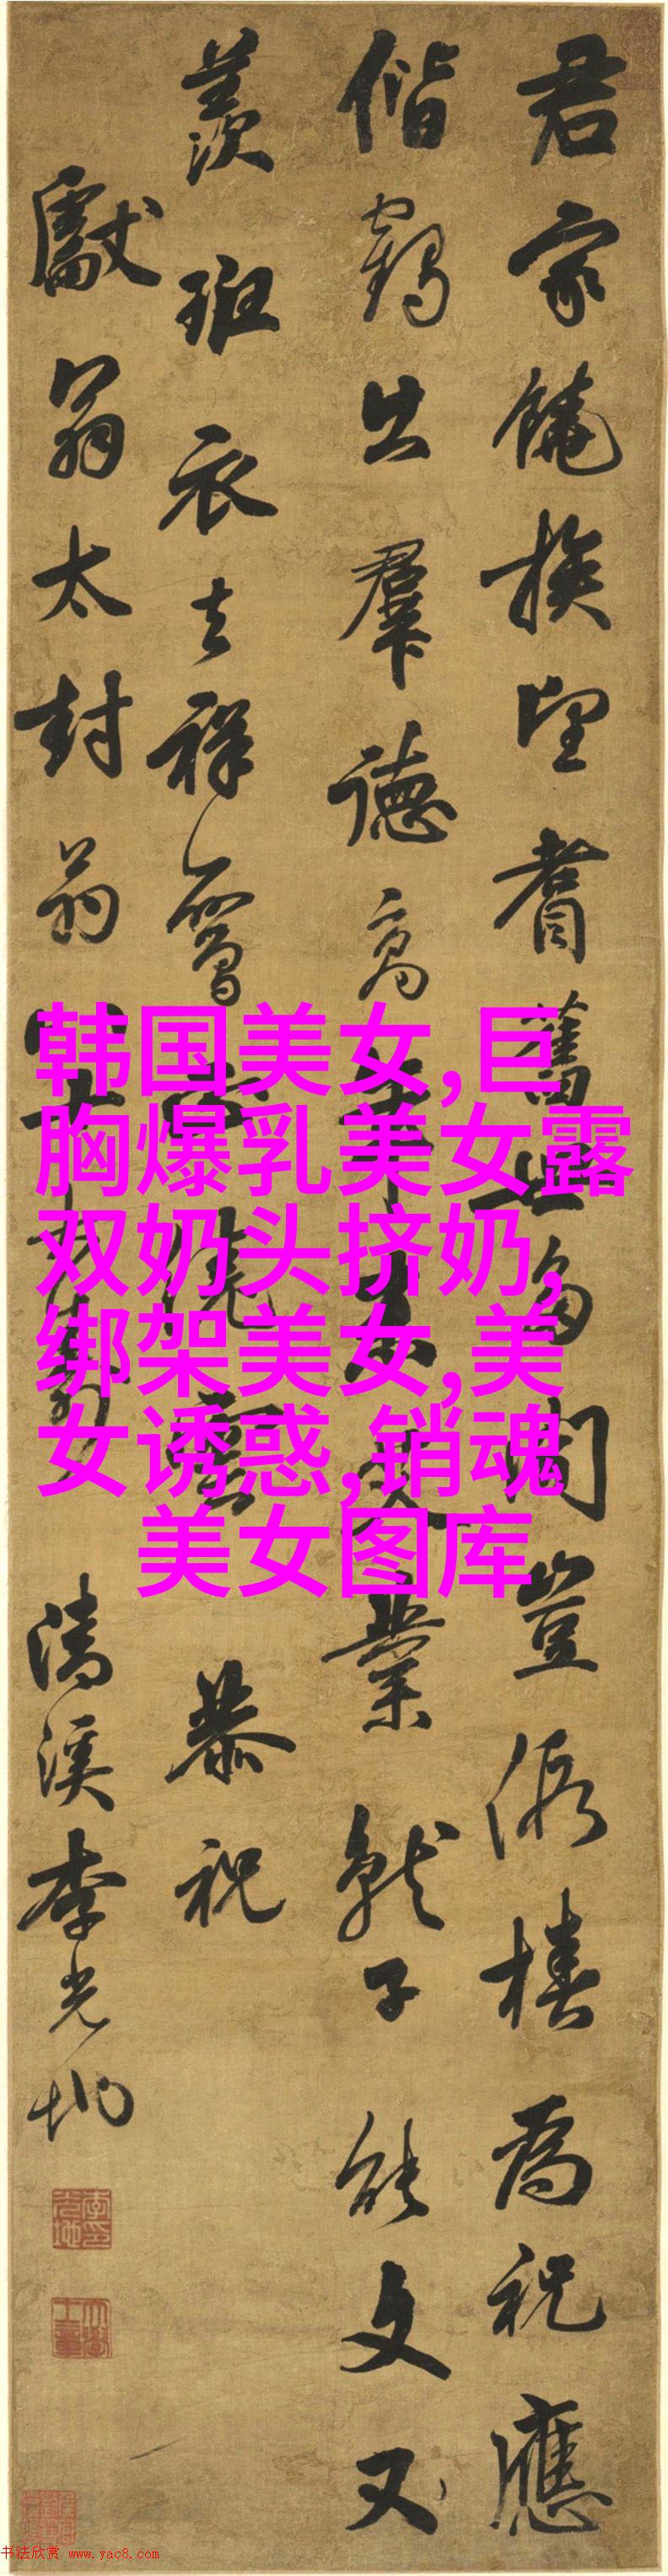 君家饒族望耆舊世多聞豈假椿為祝應
偕鶴出羣德高年業就子能文又
羨班衣去祥恭祝
獻翁太封翁清溪李光地
韩国美女,巨
胸爆乳美女露
双奶头挤奶,
绑架美女,美
女诱惑,销魂
美女图库
书法欣赏 www.yac8.com